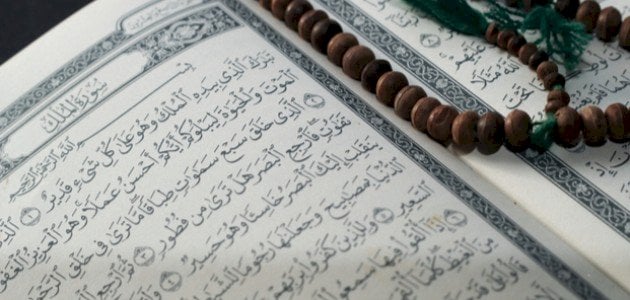 سُورَةُ المُلْكِ
بِسْمِ ٱللَّهِ ٱلرَّحْمَٰنِ ٱلرَّحِيمِ
تَبَٰرَكَ ٱلَّذِي بِيَدِهِ ٱلْمُلْكُ وَهُوَ عَلَىٰ كُلِّ شَيْءٍ قَدِيرٌ ١
ٱلْمَوْتَ وَٱلْحَيَوٰةَ لِيَبْلُوَكُمْ أَيُّكُمْ أَحْسَنُ عَمَلًا وَهُوَ ٱلْعَزِيزُ ٱلْغَفُو
ٱلَّذِي خَلَقَ سَبْعَ سَمَٰوَٰتٍ طِبَاقًا مَّا تَرَىٰ فِي خَلْقِ ٱلرَّحْ
تَفَٰوُتٍ فَٱرْجِعِ ٱلْبَصَرَ هَلْ تَرَىٰ مِن فُطُورٍ ٣ ثُمَّ ٱرْجِعِ
يَنقَلِبْ إِلَيْكَ ٱلْبَصَرُ خَاسِئًا وَهُوَ حَسِيرٌ ٤
ٱلدُّنْيَا بِمَصَٰبِيحَ وَجَعَلْنَٰهَا رُجُومًا لِّلشَّيَ
ٱلسَّعِيرِ ٥ وَلِلَّذِينَ كَفَرُوا۟ بِرَبِّهِمْ
إِذَآ أُلْقُوا۟ فِيهَا سَمِعُوا۟
مِنَ ٱلْغَيْظِ كُلَّمَآ